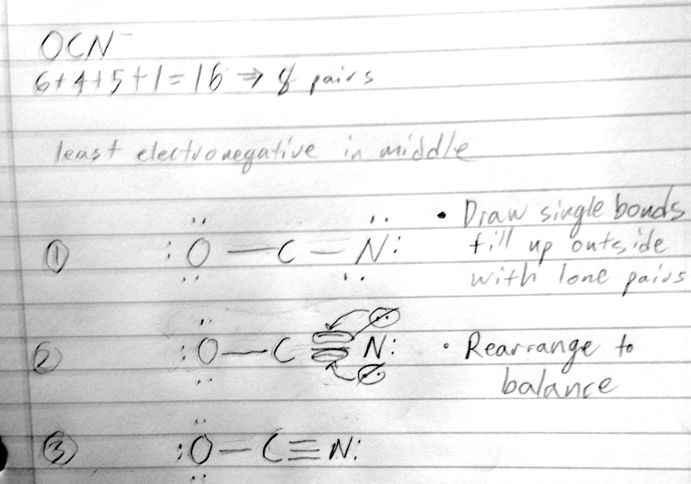 OCN⁻
6+4+5+1=16 ⇒ 8 pairs
least electronegative in middle
① :Ö — C — N̈: • Draw single bonds
fill up outside
with lone pairs
② :Ö — C ≡ N: • Rearrange to
balance
③ :Ö — C ≡ N: